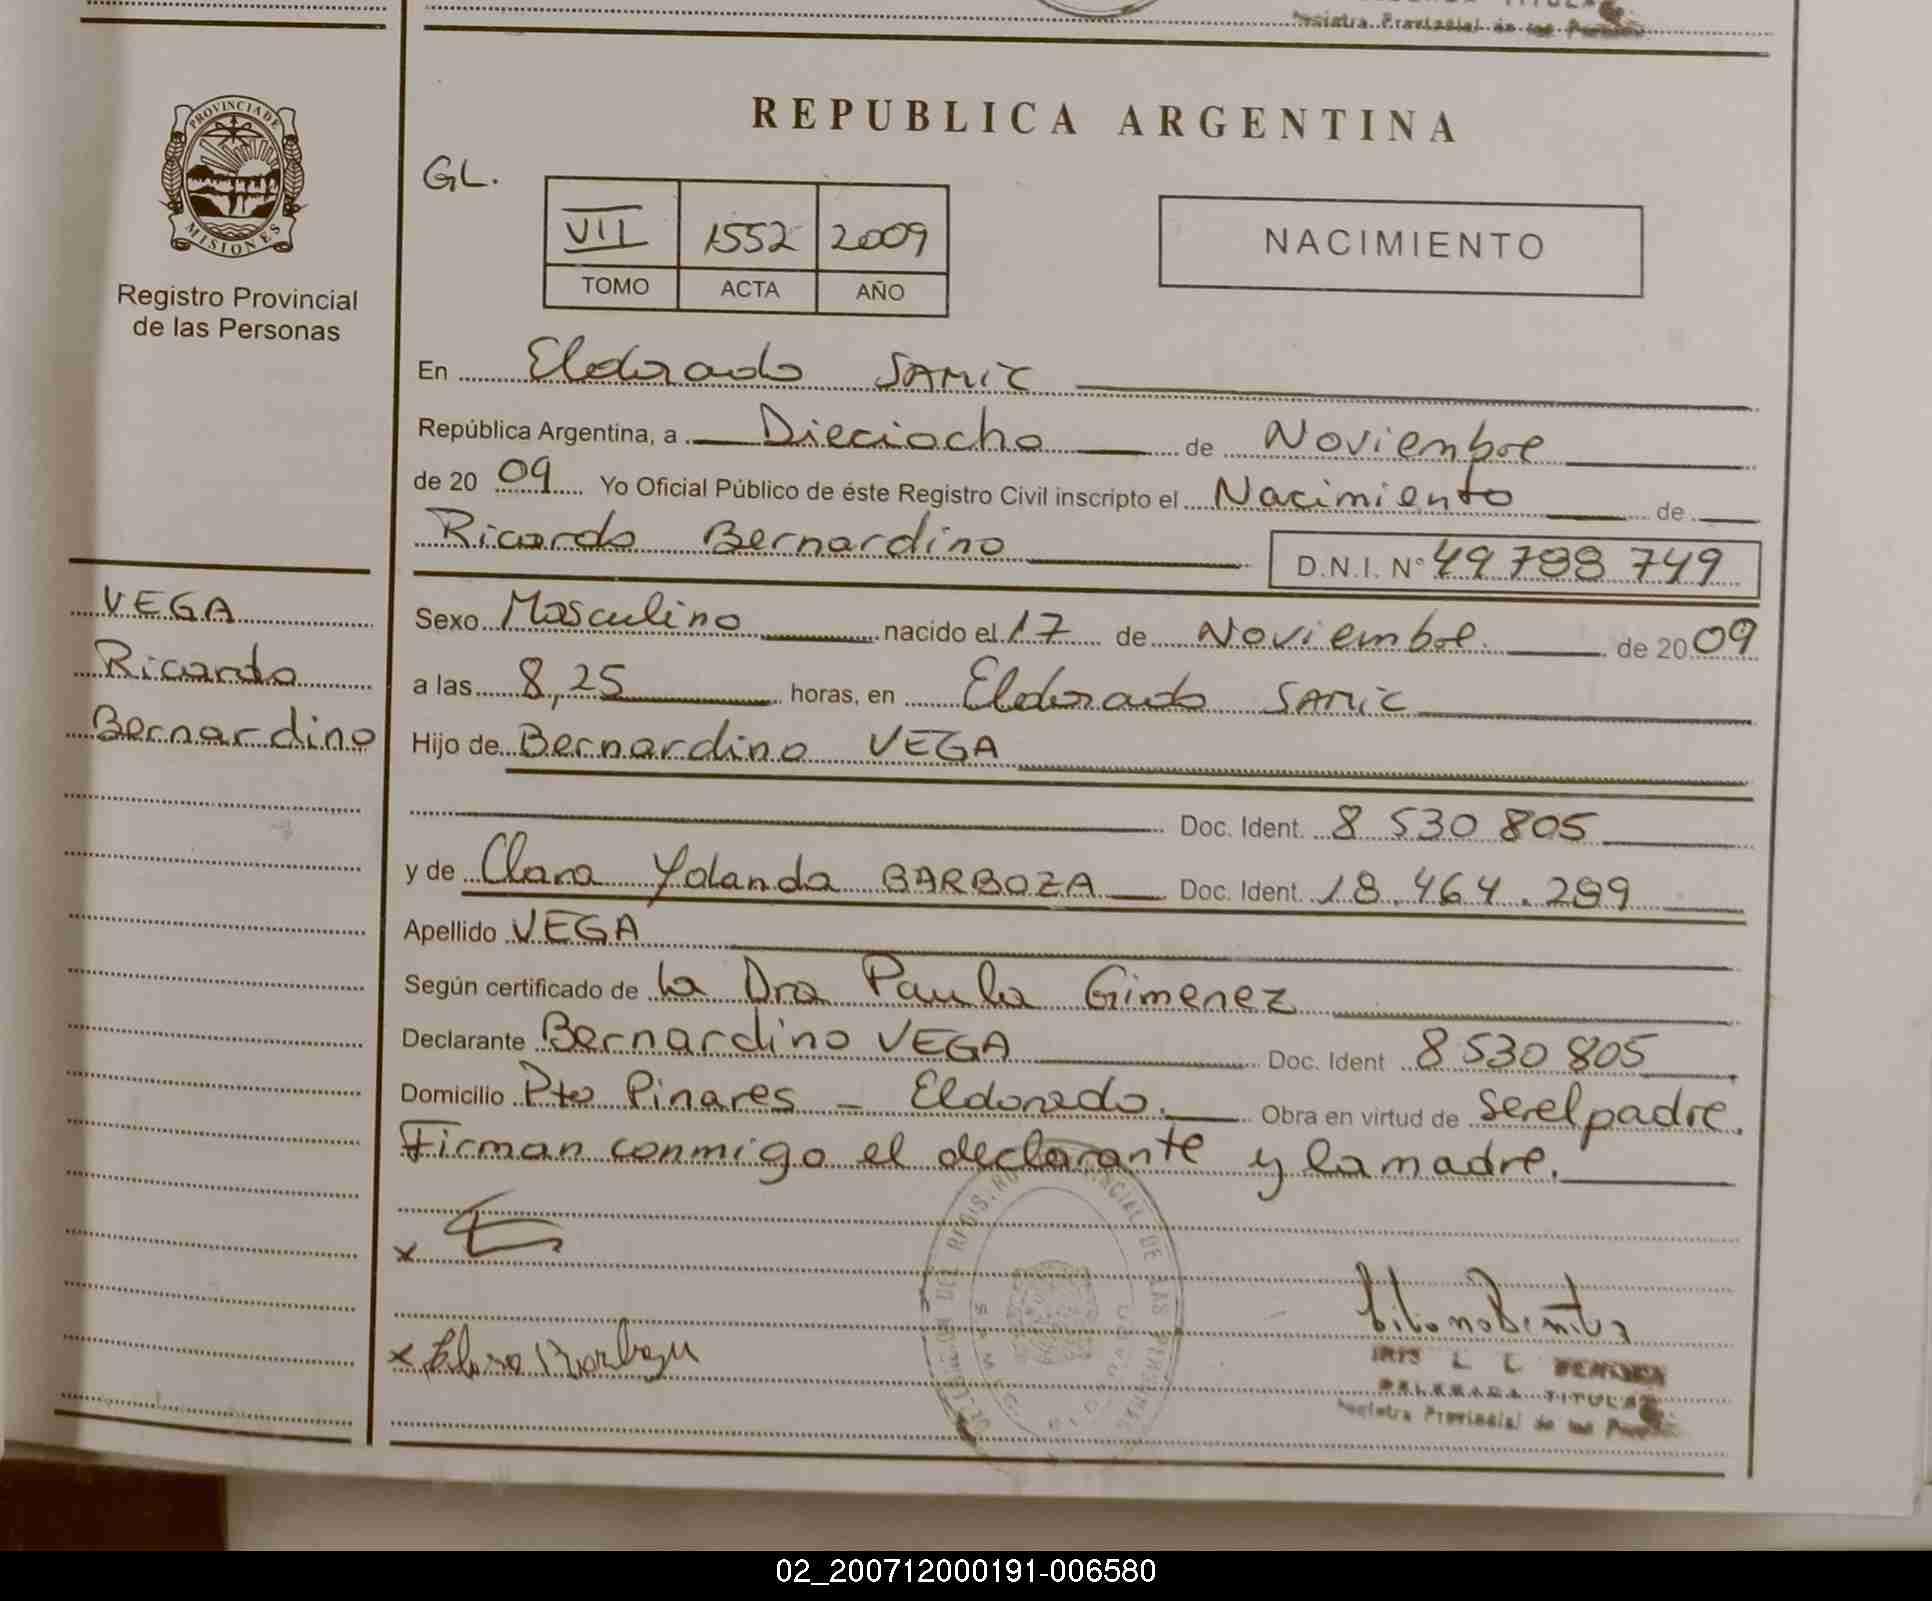 Registra Provincial de las
PROVINCIA DE
MISIONES
Registro Provincial
de las Personas
VEGA
Ricardo
Bernardino
REPUBLICA ARGENTINA
GL.
VII 1552 2009
TOMO ACTA AÑO
NACIMIENTO
En Eldorado SAMIC
República Argentina, a Dieciocho de Noviembre
de 20 09 Yo Oficial Público de éste Registro Civil inscripto el Nacimiento de
Ricardo Bernardino D.N.I. N° 49 788 749
Sexo Masculino nacido el 17 de Noviembre. de 20 09
a las 8,25 horas, en Eldorado SAMIC
Hijo de Bernardino VEGA
Doc. Ident. 8 530 805
y de Clara Yolanda BARBOZA Doc. Ident. 18.464.289
Apellido VEGA
Según certificado de la Dra Paula Gimenez
Declarante Bernardino VEGA Doc. Ident 8 530 805
Domicilio Pto Pinares - Eldorado. Obra en virtud de ser el padre.
Firman conmigo el declarante y la madre.
x
x
IRIS L L
DELEGADA TITULAR
Registra Provincial de las
02_200712000191-006580